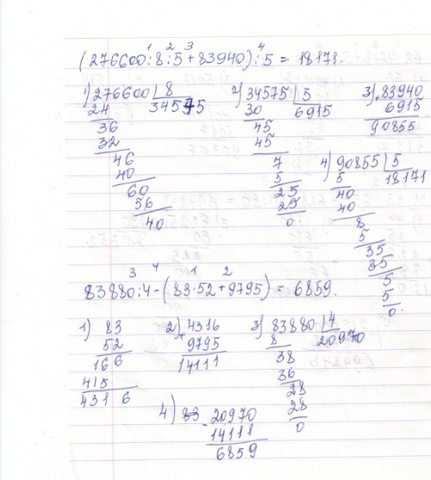 1 2 3 4
(276600:8:5+83940):5=18171.
1) 276600 | 8 2) 34575 | 5 3) 83940
24 34575 30 6915 6915
36 45 90855
32 45
46 7 4) 90855 | 5
40 5 5 18171
60 25 40
56 25 40
40 0 8
5
35
35
5
5
0
3 4 1 2
83880:4-(83·52+9795)=6859.
1) 83 2) 4316 3) 83880 | 4
52 9795 8 20970
166 14111 38
415 36
4316 28
28
0
4) 20970
14111
6859